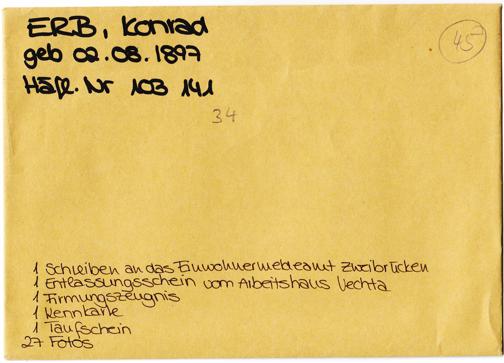 ERB, Konrad
geb 02.08.1897
Häfl. Nr 103 141
45
34
1 Schreiben an das Einwohnermeldeamt Zweibrücken
1 Entlassungsschein vom Arbeitshaus Vechta
1 Firmungszeugnis
1 Kennkarte
1 Taufschein
27 Fotos